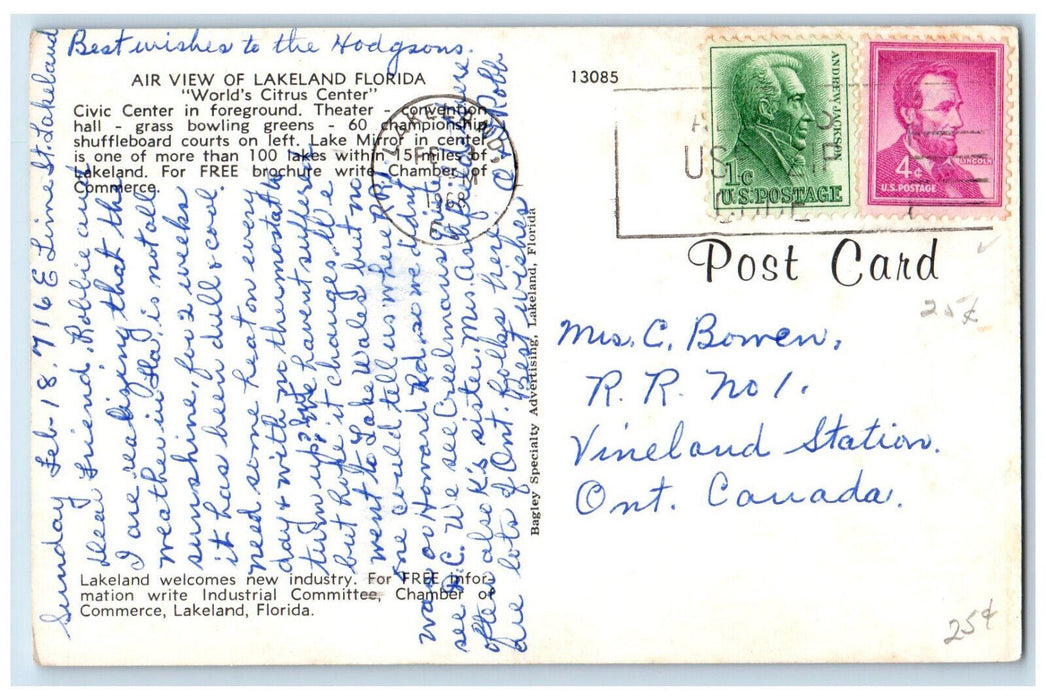 Best wishes to the Hodgsons.
AIR VIEW OF LAKELAND FLORIDA
"World's Citrus Center"
Civic Center in foreground. Theater - convention
hall - grass bowling greens - 60 championship
shuffleboard courts on left. Lake Mirror in center
is one of more than 100 lakes within 15 miles of
Lakeland. For FREE brochure write Chamber of
Commerce.
Sunday Feb-18. 716 E Lime St. Lakeland
Dear Friend. Robbie and
I are realizing that the
weather in Fla. is not all
sunshine, for 2 weeks
it has been dull & cool
need some heat on every
day & with no thermostat to
turn up, we havent suffered
but hope it changes. We
went to Lake Wales but no
one could tell us where R.R.
was or Howard Rd so we didnt
see R.C. We see Creelmans quite
often also K's sister. Mrs. Ash is here
are lots of Ont. folks here
Best wishes
Robb
Lakeland welcomes new industry. For FREE infor-
mation write Industrial Committee, Chamber of
Commerce, Lakeland, Florida.
Bagley Specialty Advertising, Lakeland, Florida
13085
1968
ANDREW JACKSON
1¢
U.S. POSTAGE
LINCOLN
4¢
U.S. POSTAGE
Post Card
25¢
Mrs. C. Bowen,
R. R. No 1.
Vineland Station.
Ont. Canada.
25¢